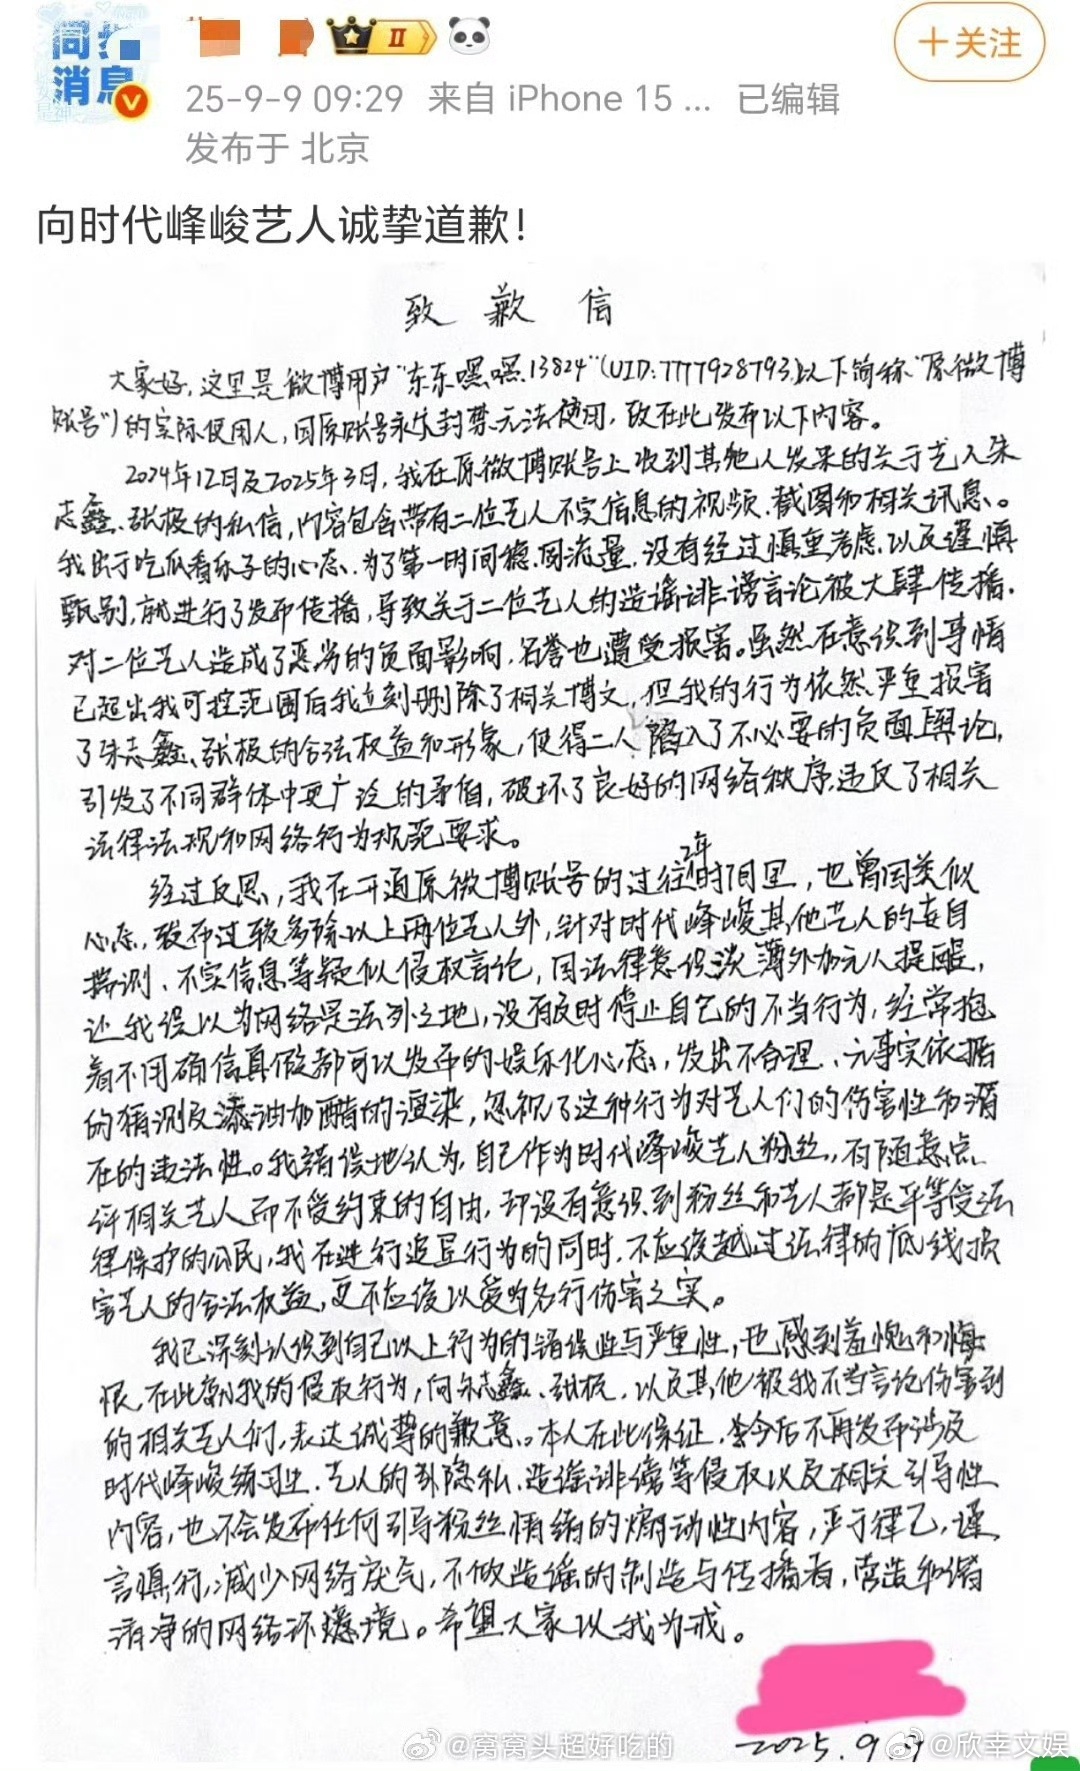 消息
II
+关注
25-9-9 09:29 来自 iPhone 15 ... 已编辑
发布于 北京
向时代峰峻艺人诚挚道歉！
致歉信
大家好，这里是微博用户“东东嘿嘿13824”(UID:7777928793,以下简称“原微博
账号”)的实际使用人，因原账号永久封禁无法使用，故在此发布以下内容。
2024年12月及2025年3月，我在原微博账号上收到其他人发来的关于艺人朱
志鑫、张极的私信，内容包含带有二位艺人不实信息的视频、截图和相关讯息。
我出于吃瓜看乐子的心态、为了第一时间稳固流量，没有经过慎重考虑、以及谨慎
甄别，就进行了发布传播，导致关于二位艺人的造谣诽谤言论被大肆传播，
对二位艺人造成了恶劣的负面影响，名誉也遭受损害。虽然在意识到事情
已超出我可控范围后我立刻删除了相关博文，但我的行为依然严重损害
了朱志鑫、张极的合法权益和形象，使得二人陷入了不必要的负面舆论，
引发了不同群体中更广泛的矛盾，破坏了良好的网络秩序，违反了相关
法律法规和网络行为规范要求。
经过反思，我在开通原微博账号的过往2年时间里，也曾因类似
心态，发布过较多除以上两位艺人外，针对时代峰峻其他艺人的妄自
揣测、不实信息等疑似侵权言论，因法律意识淡薄外加无人提醒，
让我误以为网络是法外之地，没有及时停止自己的不当行为，经常抱
着不用确信真假都可以发布的娱乐化心态，发出不合理、无事实依据
的猜测及添油加醋的渲染，忽视了这种行为对艺人们的伤害性和潜
在的违法性。我错误地认为，自己作为时代峰峻艺人粉丝，有随意点
评相关艺人而不受约束的自由，却没有意识到粉丝和艺人都是平等受法
律保护的公民，我在进行追星行为的同时，不应该越过法律的底线损
害艺人的合法权益，更不应该以爱为名行伤害之实。
我已深刻认识到自己以上行为的错误性与严重性，也感到羞愧和悔
恨，在此就我的侵权行为，向朱志鑫、张极，以及其他被我不当言论伤害到
的相关艺人们，表达诚挚的歉意。本人在此保证，会今后不再发布涉及
时代峰峻练习生、艺人的非隐私、造谣诽谤等侵权以及相关引导性
内容，也不会发布任何引导粉丝情绪的煽动性内容，严于律己，谨
言慎行，减少网络戾气，不做造谣的制造与传播者，营造和谐
清净的网络环境。希望大家以我为戒。
2025.9.9
@窝窝头超好吃的
@欣幸文娱